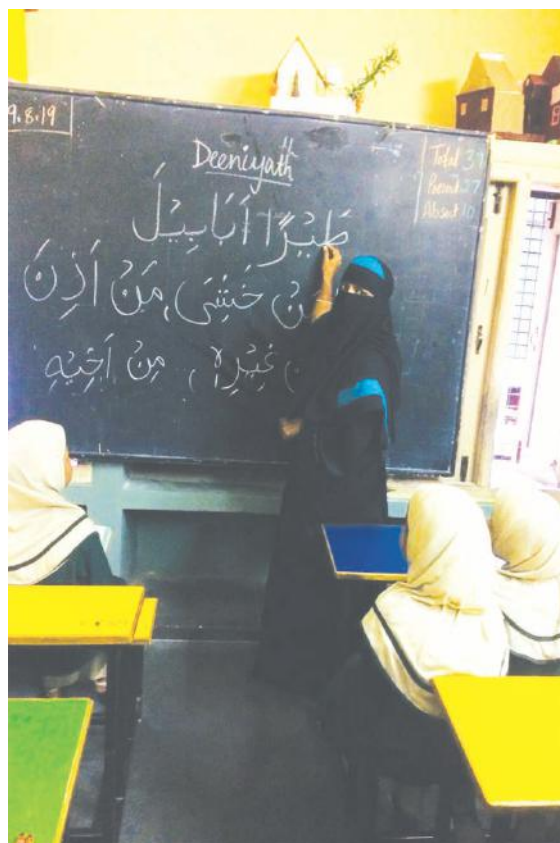 9.8.19
Deeniyath
Total 37
Present 27
Absent 10
طَيْرًا اَبَابِيْلَ
خَشِىَ، مَنْ اَذِنَ
غَيْرِهٖ، مِنْ اَخِيْهِ